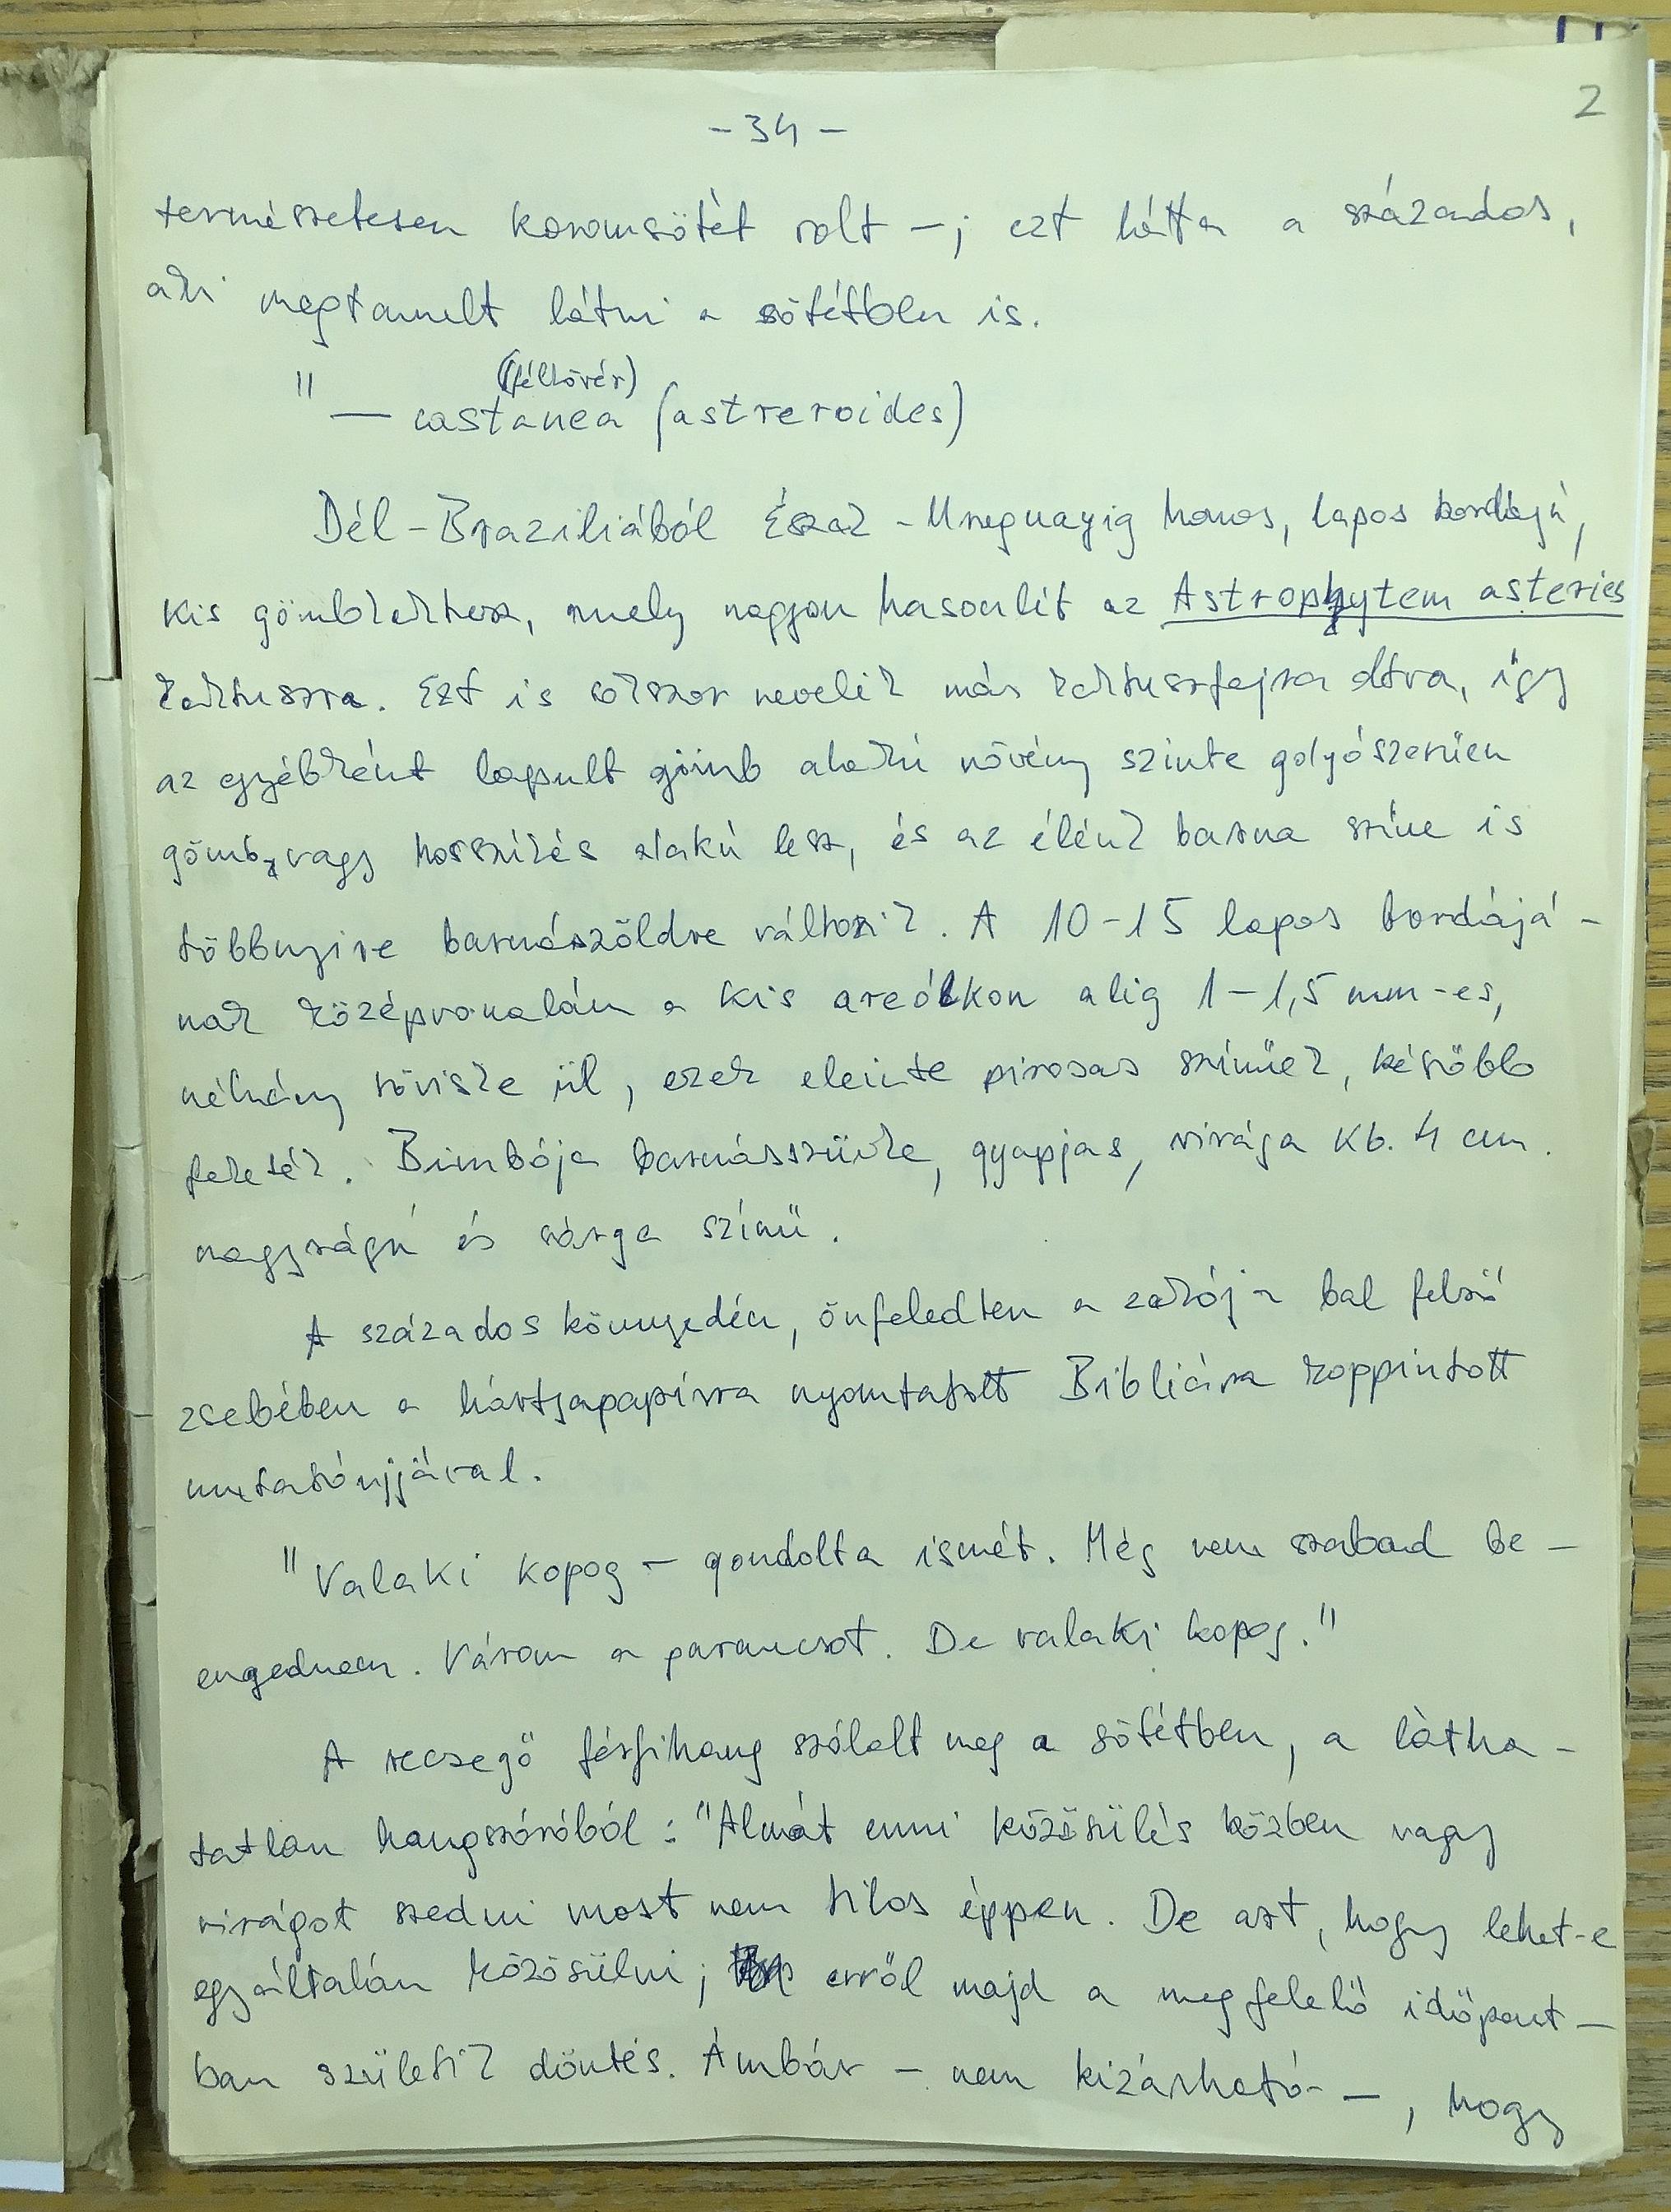 2
- 34 -
természetesen koromsötét volt -; ezt látta a százados,
aki megtanult látni a sötétben is.
(félkövér)
" — castanea (astreroides)
Dél-Braziliából Észak-Uruguayig honos, lapos bordájú,
kis gömbkaktusz, mely nagyon hasonlít az Astrophytem asteries
kaktuszra. Ezt is sokszor nevelik más kaktuszfajra oltva, így
az egyébként lapult gömb alakú növény szinte golyószerűen
gömb, vagy hosszúkás alakú lesz, és az élénk barna színe is
többnyire barnászöldre változik. A 10-15 lapos bordájá-
nak középvonalán a kis areólkon alig 1-1,5 mm-es,
néhány töviske ül, ezek eleinte pirosas színűek, később
feketék. Bimbója barnásszürke, gyapjas, virága kb. 4 cm.
nagyságú és sárga színű.
A százados könnyedén, önfeledten a zakója bal felső
zsebében a hártyapapírra nyomtatott Bibliára koppintott
mutatóujjával.
"Valaki kopog - gondolta ismét. Még nem szabad be-
engednem. Várom a parancsot. De valaki kopog."
A recsegő férfihang szólalt meg a sötétben, a látha-
tatlan hangszóróból: "Almát enni közösülés közben vagy
virágot szedni most nem tilos éppen. De azt, hogy lehet-e
egyáltalán közösülni; erről majd a megfelelő időpont-
ban születik döntés. Ámbár - nem kizárható - , hogy